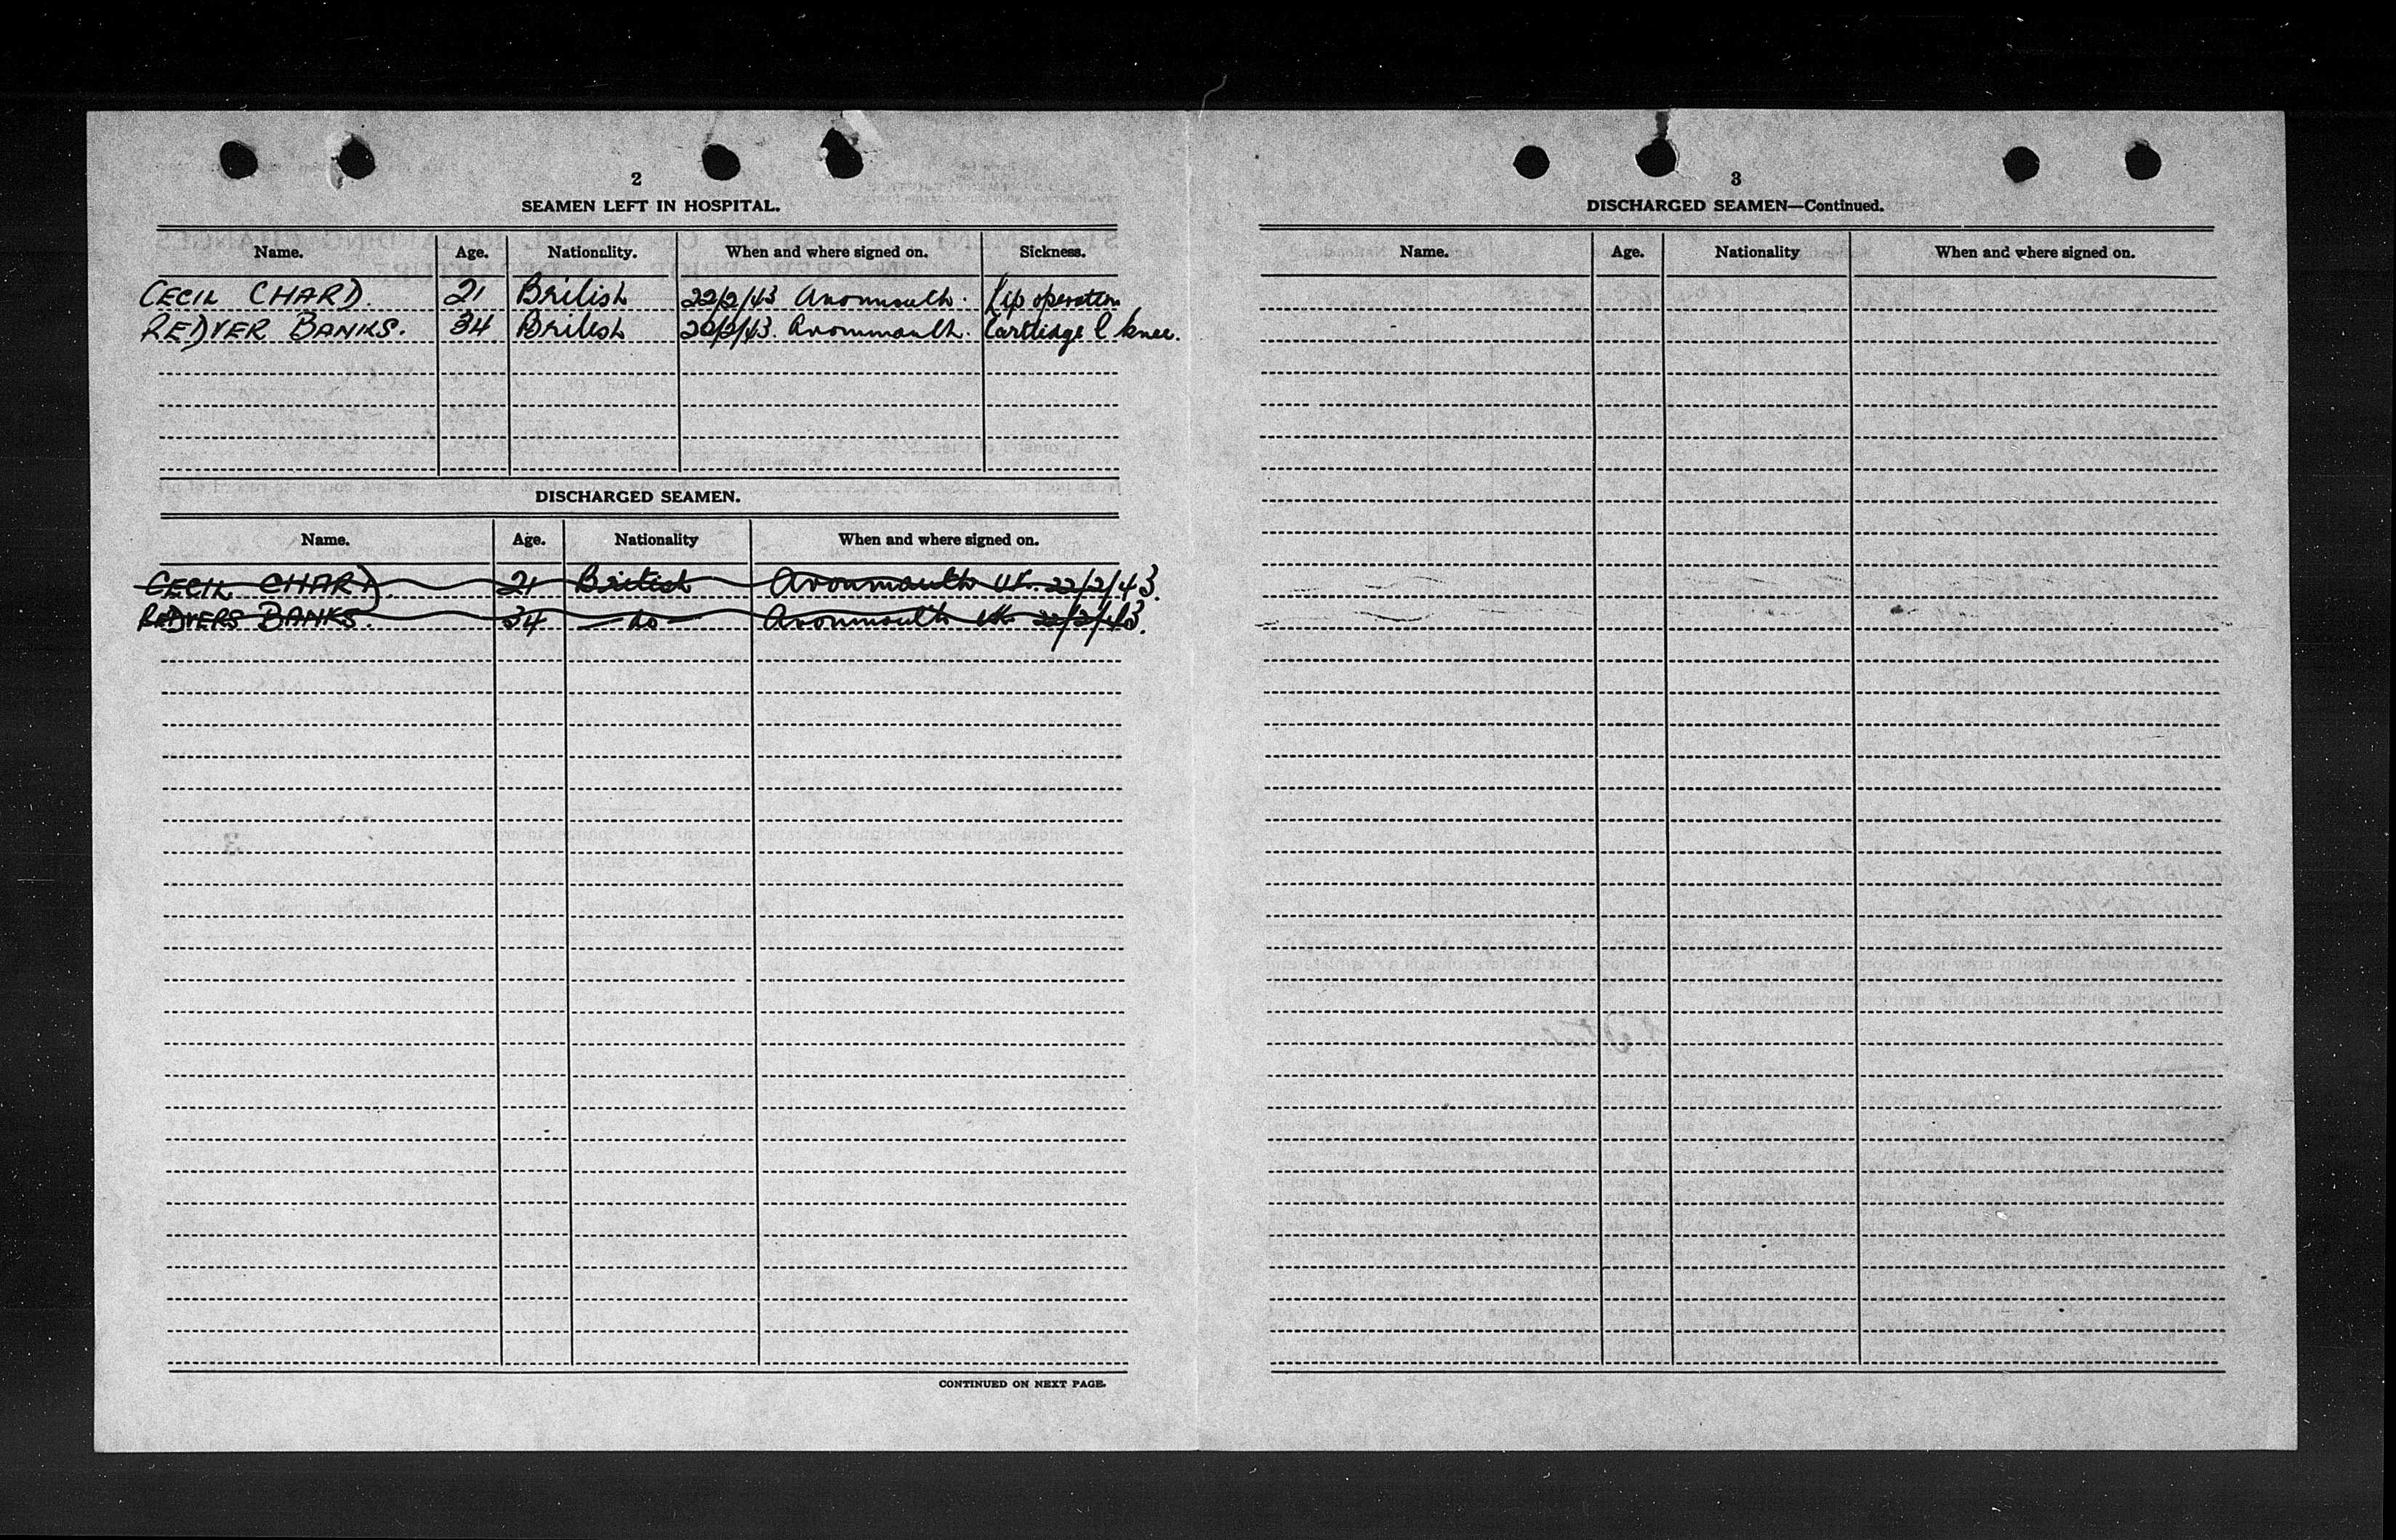 2
SEAMEN LEFT IN HOSPITAL.
Name. Age. Nationality. When and where signed on. Sickness.
CECIL CHARD. 21 British 22/2/43 Avonmouth. Lip operation
REDVER BANKS. 34 British 22/2/43. Avonmouth. Cartlidge l knee.
DISCHARGED SEAMEN.
Name. Age. Nationality When and where signed on.
CECIL CHARD. 21 British Avonmouth UK. 22/2/43.
REDVERS BANKS. 34 — do — Avonmouth UK 22/2/43.
CONTINUED ON NEXT PAGE.
3
DISCHARGED SEAMEN—Continued.
Name. Age. Nationality When and where signed on.